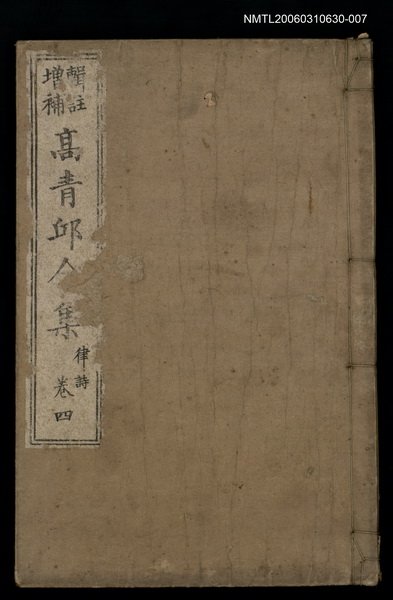 NMTL20060310630-007
輯註
增補
高青邱全集
律詩
卷四